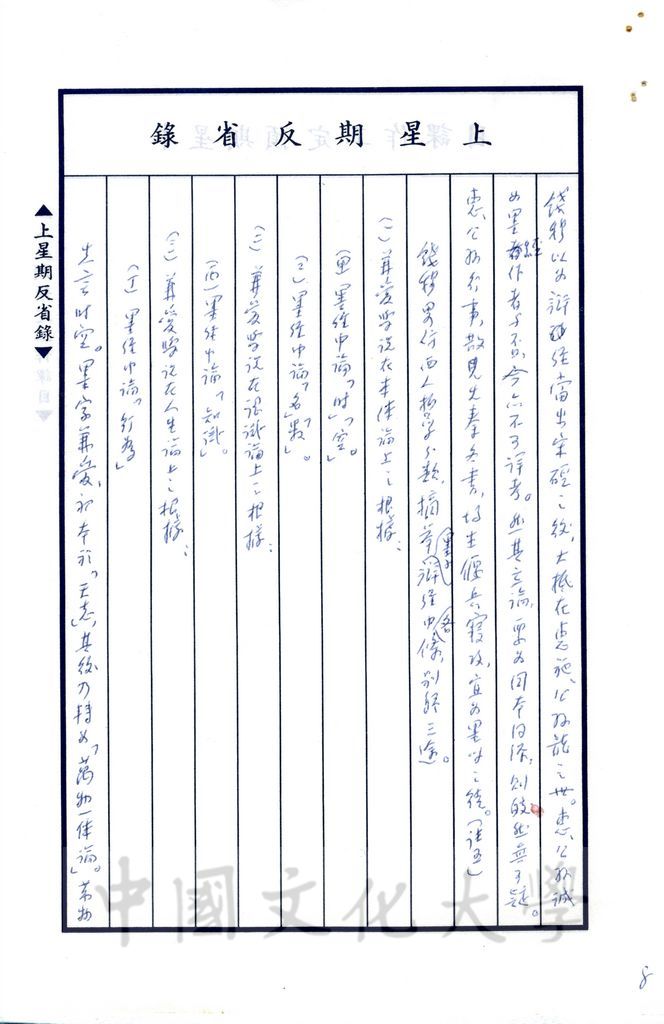 上星期反省錄
錢穆以為辯經當出宋鈃之後，大抵在惠施、公孫龍之世。惠、公孫誠
為墨經作者與否，今亦不可詳考。然其立論，要為同本同源，則皎然無可疑。
惠、公孫行事，散見先秦各書，均主偃兵寢攻，宜為墨學之徒。(註五)
錢穆男仿西人哲學分類，摘萃墨子辯經中各條，別發三途。
(一)兼愛學說在本體論上之根據：
(甲)墨經中論「時」「空」。
(乙)墨經中論「名」「數」。
(二)兼愛學說在認識論上之根據：
(丙)墨經中論「知識」。
(三)兼愛學說在人生論上之根據：
(丁)墨經中論「行為」
先言時空。墨家兼愛，初本於「天志」，其後乃轉為「萬物一體論」。萬物
▲上星期反省錄▼
中國文化大學
8